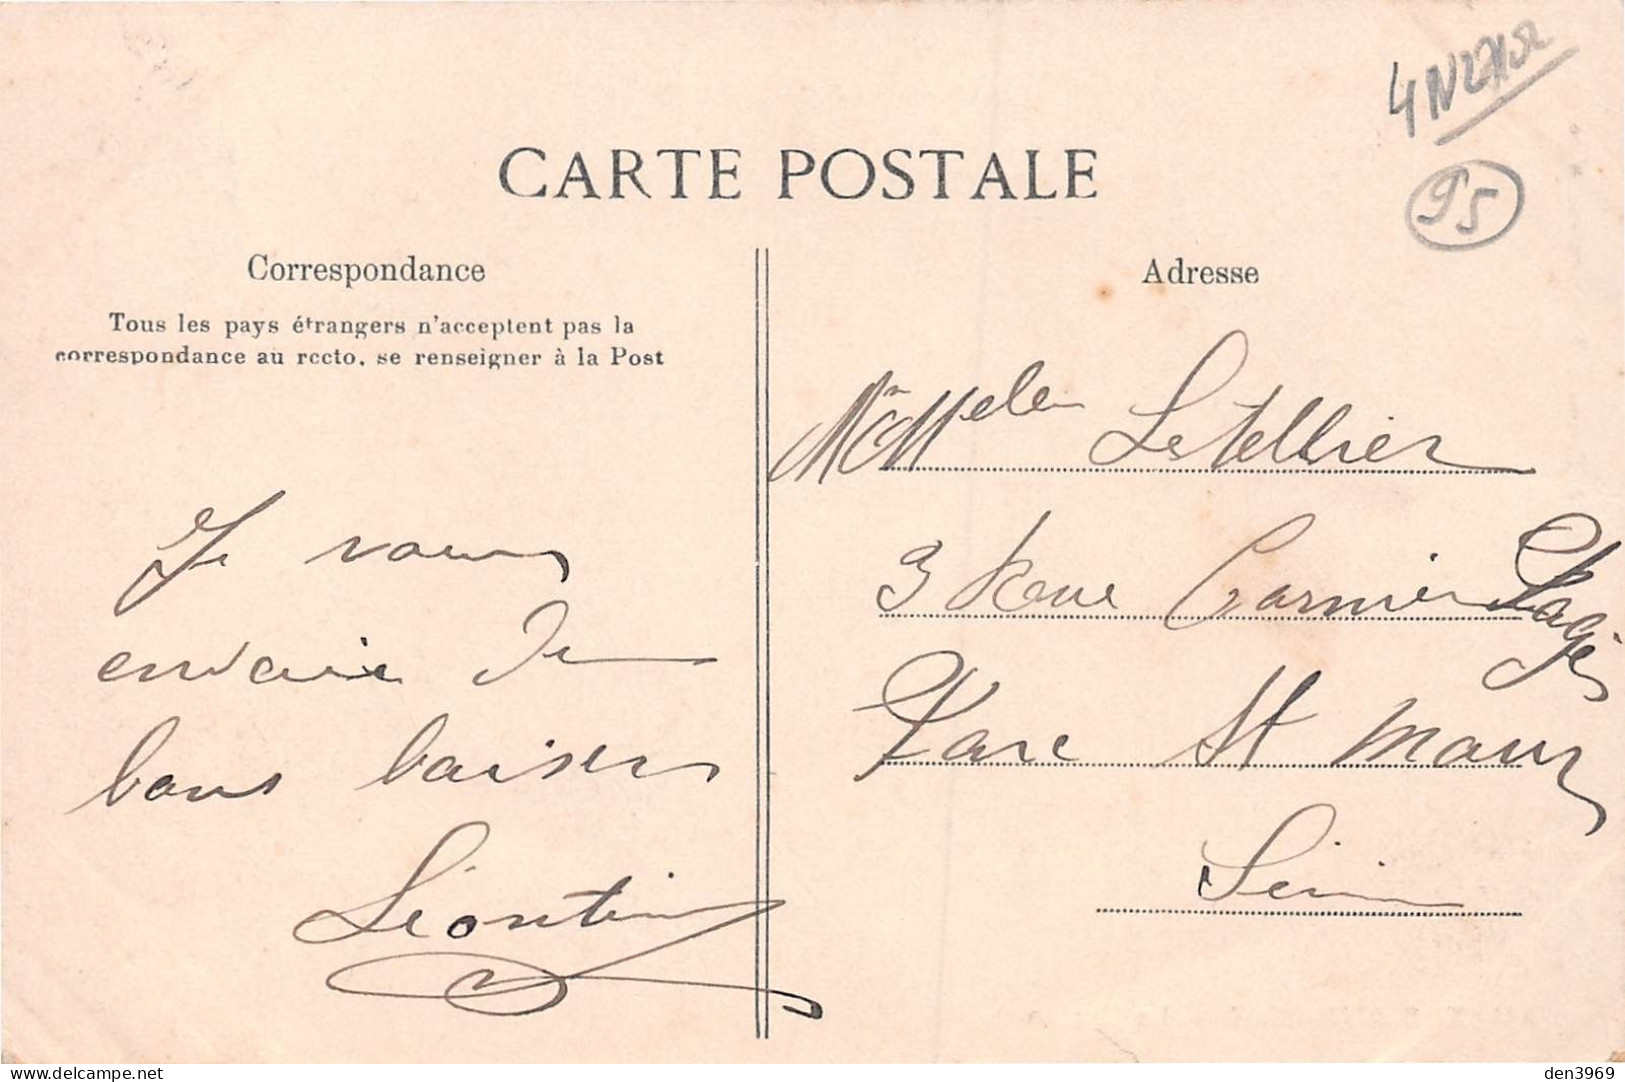 CARTE POSTALE
95
Correspondance
Tous les pays étrangers n'acceptent pas la
correspondance au recto, se renseigner à la Post
Je vous
envoie de
bons baisers
Léontine
Adresse
Letellier
3 Rue Garnier Pagès
Parc St Maur
Seine
delcampe.net
den3969